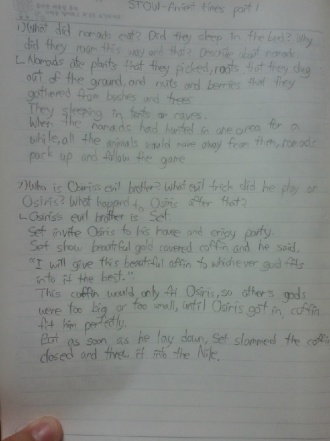 STOW-Ancient times part 1
1) What did nomads eat? Did they sleep in the bed? Why
did they move this way and that? Describe about nomads.
Nomads ate plants that they picked, roots that they dug
out of the ground, and nuts and berries that they
gathered from bushes and trees.
They sleeping in tents or caves.
When the nomads had hunted in one area for a
while, all the animals would move away from them, nomads
pack up and follow the game
2) Who is Osiris's evil brother? What evil trick did he play on
Osiris? What happend to Osiris after that?
Osiris's evil brother is Set
Set invite Osiris to his house and enjoy party.
Set show beautiful gold covered coffin and he said,
"I will give this beautiful coffin to whichever god fits
into it the best."
This coffin would only fit Osiris, so other's gods
were too big or too small, until Osiris got in, coffin
fit him perfectly.
But as soon as he lay down, Set slammed the coffin
closed and threw it into the Nile.